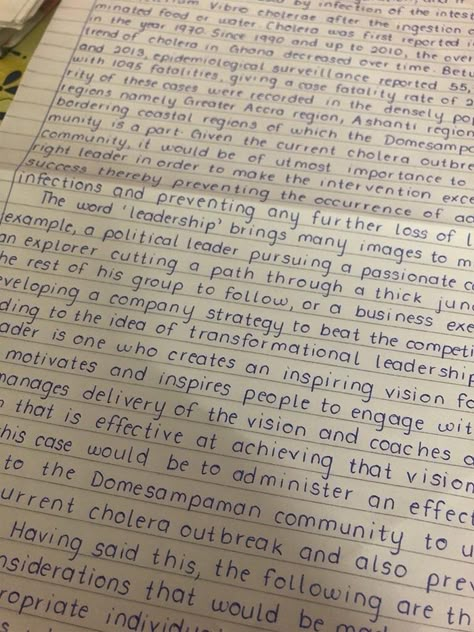 by infection of the intes
Vibro cholerae after the ingestion
minated food or water. Cholera was first reported
in the year 1970. Since 1990 and up to 2010, the over
trend of cholera in Ghana decreased over time. Bet
and 2013, epidemiological surveillance reported 55,
with 1095 fatalities, giving a case fatality rate of
rity of these cases were recorded in the densely po
regions namely Greater Accra region, Ashanti region
bordering coastal regions of which the Domesampa
munity is a part. Given the current cholera outbre
community, it would be of utmost importance to
right leader in order to make the intervention exce
success thereby preventing the occurrence of ad
infections and preventing any further loss of l
The word 'leadership' brings many images to m
example, a political leader pursuing a passionate c
an explorer cutting a path through a thick jun
he rest of his group to follow, or a business exec
eveloping a company strategy to beat the competi
ding to the idea of transformational leadership
ader is one who creates an inspiring vision fo
motivates and inspires people to engage wit
manages delivery of the vision and coaches a
that is effective at achieving that vision
his case would be to administer an effect
to the Domesampaman community to u
urrent cholera outbreak and also prev
Having said this, the following are th
nsiderations that would be
ropriate individu